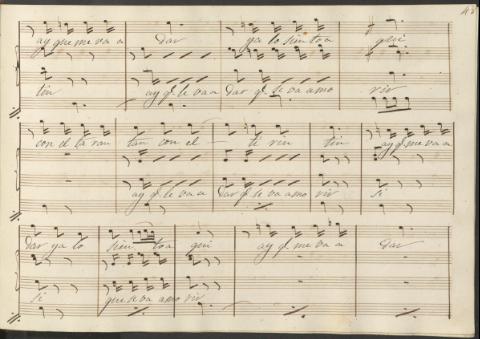 ay que me va a dar ya lo siento a qui
tin ay q.e le va a dar q.e le va a mo rir
con el ta ran tan con el te rin tin ay q.e me va a
ay q.e le va a dar q.e le va a mo rir si
dar ya lo sien to a qui ay q.e me va a dar
si que le va a mo rir